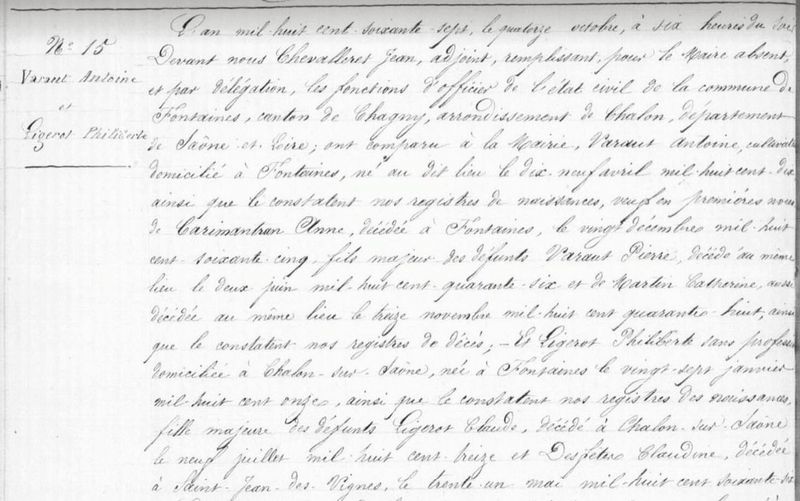 N° 15
Varaut Antoine
et
Ligerot Philiberte
L'an mil huit cent soixante sept, le quatorze octobre, à six heures du soir
Devant nous Chevalleret Jean, adjoint, remplissant, pour le Maire absent,
et par délégation, les fonctions d'officier de l'état civil de la commune de
Fontaines, canton de Chagny, arrondissement de Chalon, département
de Saône et Loire; ont comparu à la Mairie, Varaut Antoine, cultivateur
domicilié à Fontaines, né au dit lieu le dix-neuf avril mil huit cent dix
ainsi que le constatent nos registres de naissances, veuf en premières noces
de Carimantran Anne, décédée à Fontaines, le vingt décembre mil huit
cent soixante cinq, fils majeur des défunts Varaut Pierre, décédé au même
lieu le deux juin mil huit cent quarante-six et de Martin Catherine, aussi
décédée au même lieu le treize novembre mil huit cent quarante-huit, ainsi
que le constatent nos registres de décès; - Et Ligerot Philiberte sans profession
domiciliée à Chalon-sur-Saône, née à Fontaines le vingt-sept janvier
mil huit cent onze, ainsi que le constatent nos registres des naissances,
fille majeure des défunts Ligerot Claude, décédé à Chalon-sur-Saône
le neuf juillet mil huit cent treize et Desfêtes Claudine, décédée
à Saint-Jean-des-Vignes, le trente-un mai mil huit cent soixante-six